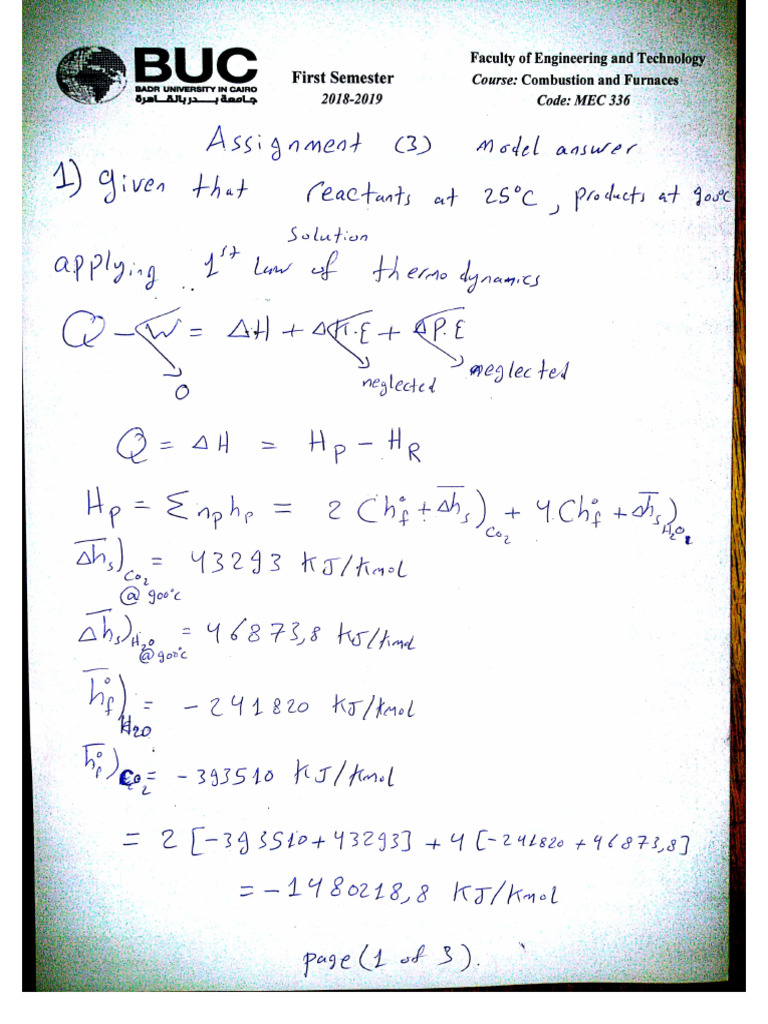 BUC
BADR UNIVERSITY IN CAIRO
جامعة بدر بالقاهرة
First Semester
2018-2019
Faculty of Engineering and Technology
Course: Combustion and Furnaces
Code: MEC 336
Assignment (3) Model answer
1) given that reactants at 25°C, products at 900°C
Solution
applying 1st law of thermodynamics
Q - W = ΔH + ΔK.E + ΔP.E
0 neglected neglected
Q = ΔH = HP - HR
HP = Σ nP hP = 2 (h°f + Δhs)CO2 + 4 (h°f + Δhs)H2O
Δhs)CO2 @900°C = 43293 KJ/Kmol
Δhs)H2O @900°C = 46873,8 KJ/Kmol
h°f)H2O = - 241820 KJ/Kmol
h°f)CO2 = - 393510 KJ/Kmol
= 2 [-393510 + 43293] + 4 [-241820 + 46873,8]
= - 1480218,8 KJ/Kmol
page (1 of 3).